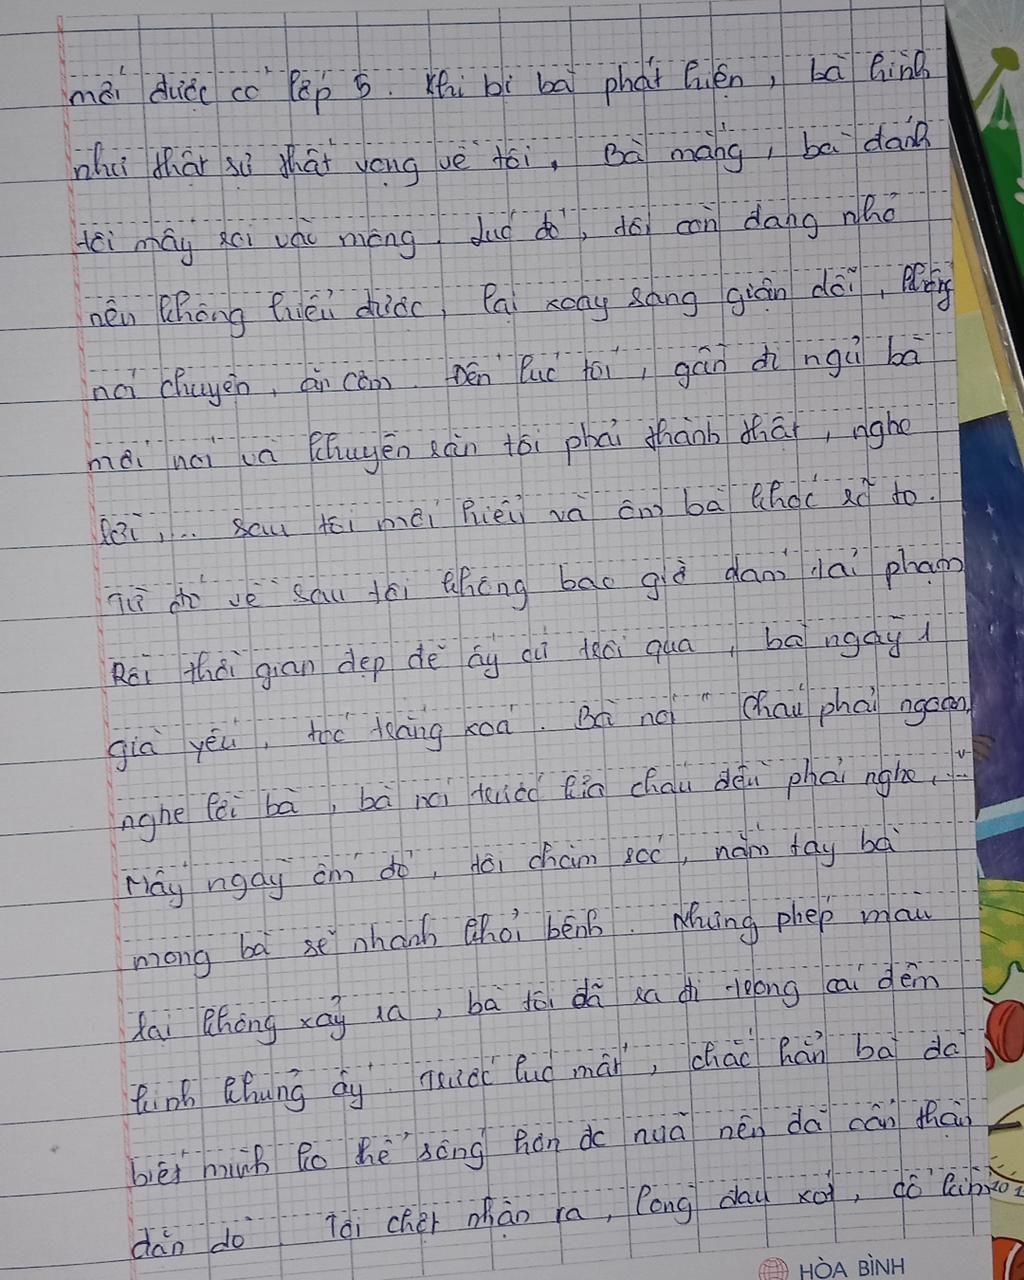 mới được có lớp 5. Khi bị bà phát hiện, bà hình
như thật sự thất vọng về tôi, Bà mắng, bà đánh
tôi mấy roi vào mông. Lúc đó, tôi còn đang nhỏ
nên không hiểu được, lại xoay sang giận dỗi, không
nói chuyện, ăn cơm. Đến lúc tối, gần đi ngủ bà
mới nói và khuyên răn tôi phải thành thật, nghe
lời,... sau tôi mới hiểu và ôm bà khóc rõ to.
Từ đó về sau tôi không bao giờ dám tái phạm
Rồi thời gian đẹp đẽ ấy cứ trôi qua, bà ngày 1
già yếu, tóc trắng xoá. Bà nói " Cháu phải ngoan,
nghe lời bà, bà nói trước kia cháu đều phải nghe,..."
Mấy ngày ốm đó, tôi chăm sóc, nắm tay bà
mong bà sẽ nhanh khỏi bệnh. Nhưng phép màu
lại không xảy ra, bà tôi đã ra đi trong cái đêm
kinh khủng ấy. Trước lúc mất, chắc hẳn bà đã
biết mình ko hề sống hơn đc nữa nên đã căn thặn
dặn dò. Tôi chợt nhận ra, lòng đau xót, cô
HÒA BÌNH